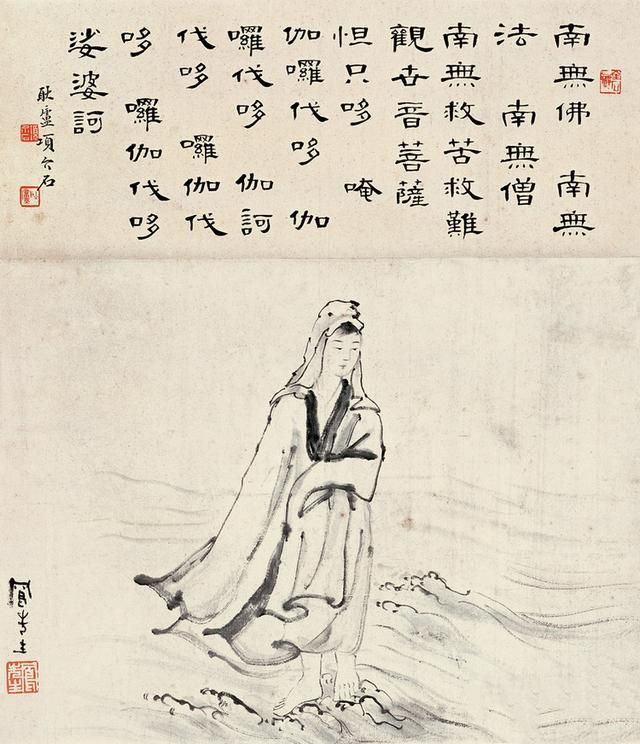 南無佛 南無
法 南無僧
南無救苦救難
觀世音菩薩
怛只哆 唵
伽囉伐哆 伽
囉伐哆 伽訶
伐哆 囉伽伐
哆 囉伽伐哆
娑婆訶
項介石